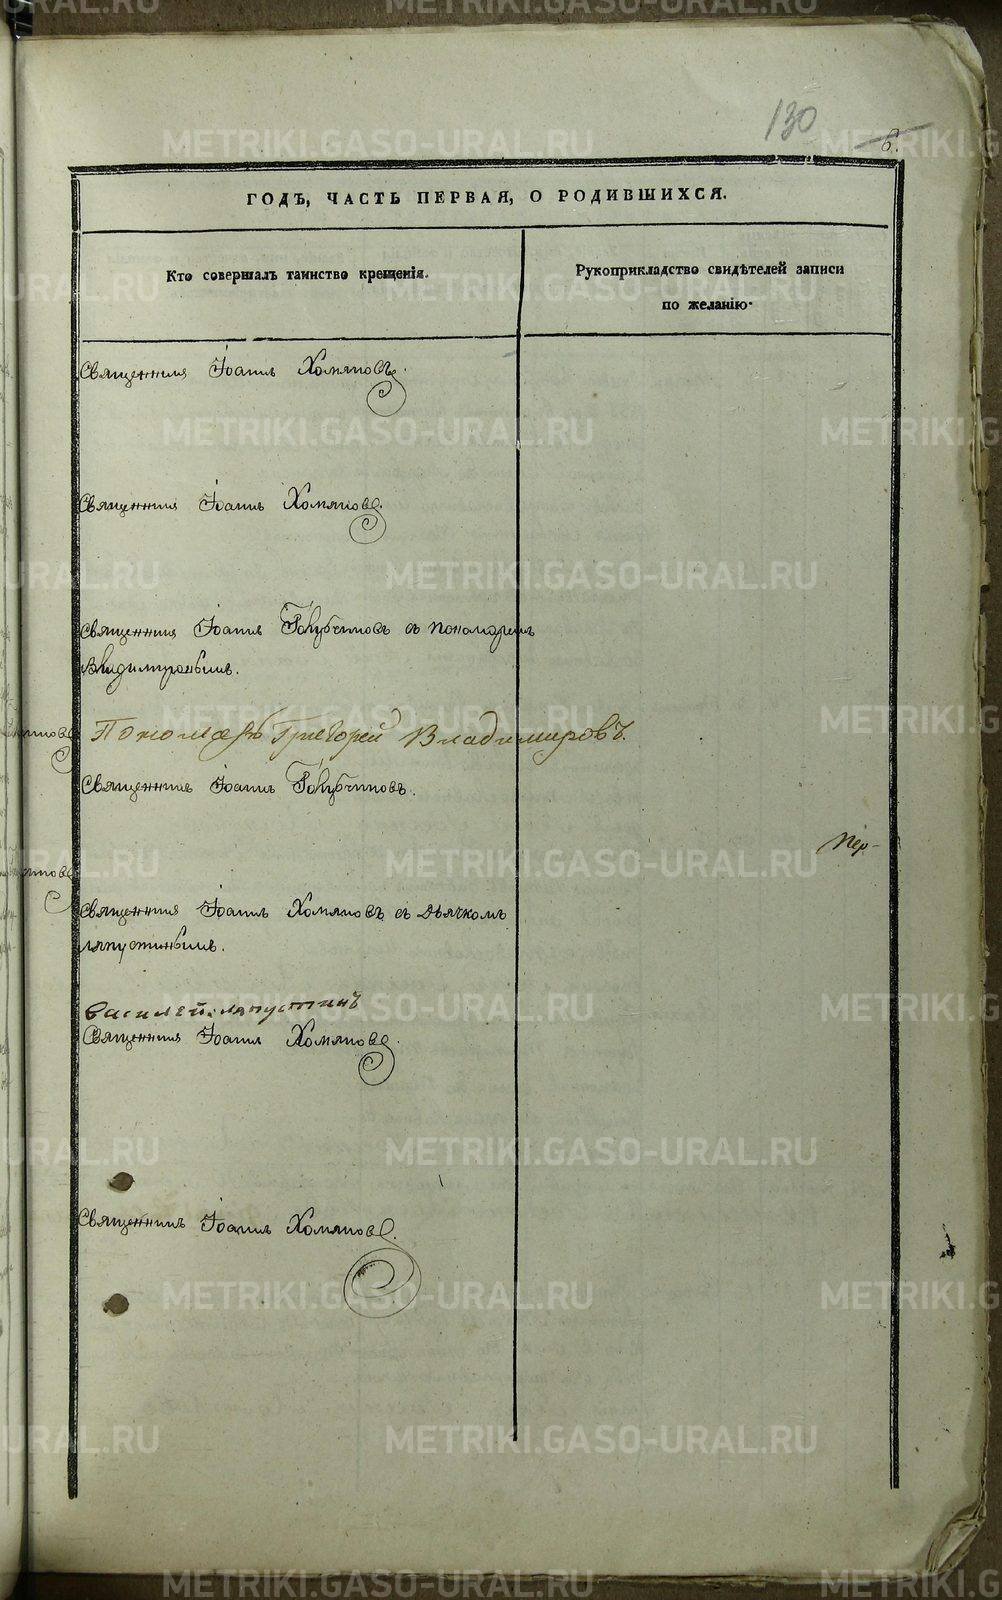 130
6.
ГОДЪ, ЧАСТЬ ПЕРВАЯ, О РОДИВШИХСЯ.
Кто совершалъ таинство крещенія.
Рукоприкладство свидѣтелей записи
по желанію.
Священникъ Іоаннъ Хомяковъ.
Священникъ Іоаннъ Хомяковъ.
Священникъ Іоаннъ Голубчиковъ съ пономаремъ
Владимировымъ.
Пономарь Григорей Владимировъ
Священникъ Іоаннъ Голубчиковъ.
Пер-
Священникъ Іоаннъ Хомяковъ съ дьячкомъ
Ляпустинымъ.
Василей Ляпустинъ
Священникъ Іоаннъ Хомяковъ.
Священникъ Іоаннъ Хомяковъ.
METRIKI.GASO-URAL.RU